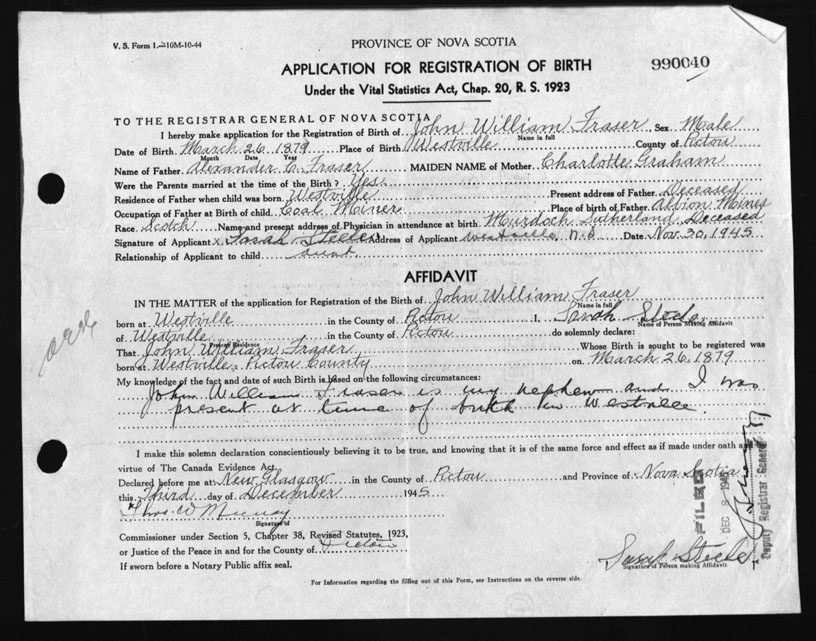 V. S. Form 1.—10M-10-44
PROVINCE OF NOVA SCOTIA
990040
APPLICATION FOR REGISTRATION OF BIRTH
Under the Vital Statistics Act, Chap. 20, R. S. 1923
TO THE REGISTRAR GENERAL OF NOVA SCOTIA
I hereby make application for the Registration of Birth of John William Fraser Sex Male
Name in full
Date of Birth March 26, 1879 Place of Birth Westville County of Pictou
Month Date Year
Name of Father Alexander C. Fraser MAIDEN NAME of Mother Charlotte Graham
Were the Parents married at the time of the Birth? Yes.
Residence of Father when child was born Westville Present address of Father Deceased
Occupation of Father at Birth of child Coal Miner Place of birth of Father Albion Mines
Race Scotch Name and present address of Physician in attendance at birth Murdoch Sutherland, Deceased
Signature of Applicant x Sarah Steele Address of Applicant Westville, N.S. Date Nov. 30, 1945
Relationship of Applicant to child aunt.
AFFIDAVIT
IN THE MATTER of the application for Registration of the Birth of John William Fraser
Name in full
born at Westville in the County of Pictou I, Sarah Steele
Name of Person Making Affidavit
of Westville in the County of Pictou do solemnly declare:
Present Residence
That John William Fraser Whose Birth is sought to be registered was
born at Westville, Pictou County on March 26, 1879
My knowledge of the fact and date of such Birth is based on the following circumstances:
John William Fraser is my nephew and I was
present at time of birth in Westville.
I make this solemn declaration conscientiously believing it to be true, and knowing that it is of the same force and effect as if made under oath and by
virtue of The Canada Evidence Act.
Declared before me at New Glasgow in the County of Pictou and Province of Nova Scotia
this Third day of December 1945
Thos. W Murray
Signature of
Commissioner under Section 5, Chapter 38, Revised Statutes, 1923,
or Justice of the Peace in and for the County of Pictou
If sworn before a Notary Public affix seal.
Sarah Steele
Signature of Person making Affidavit
FILED
DEC 8 1945
Deputy Registrar General
For Information regarding the filling out of this Form, see Instructions on the reverse side.